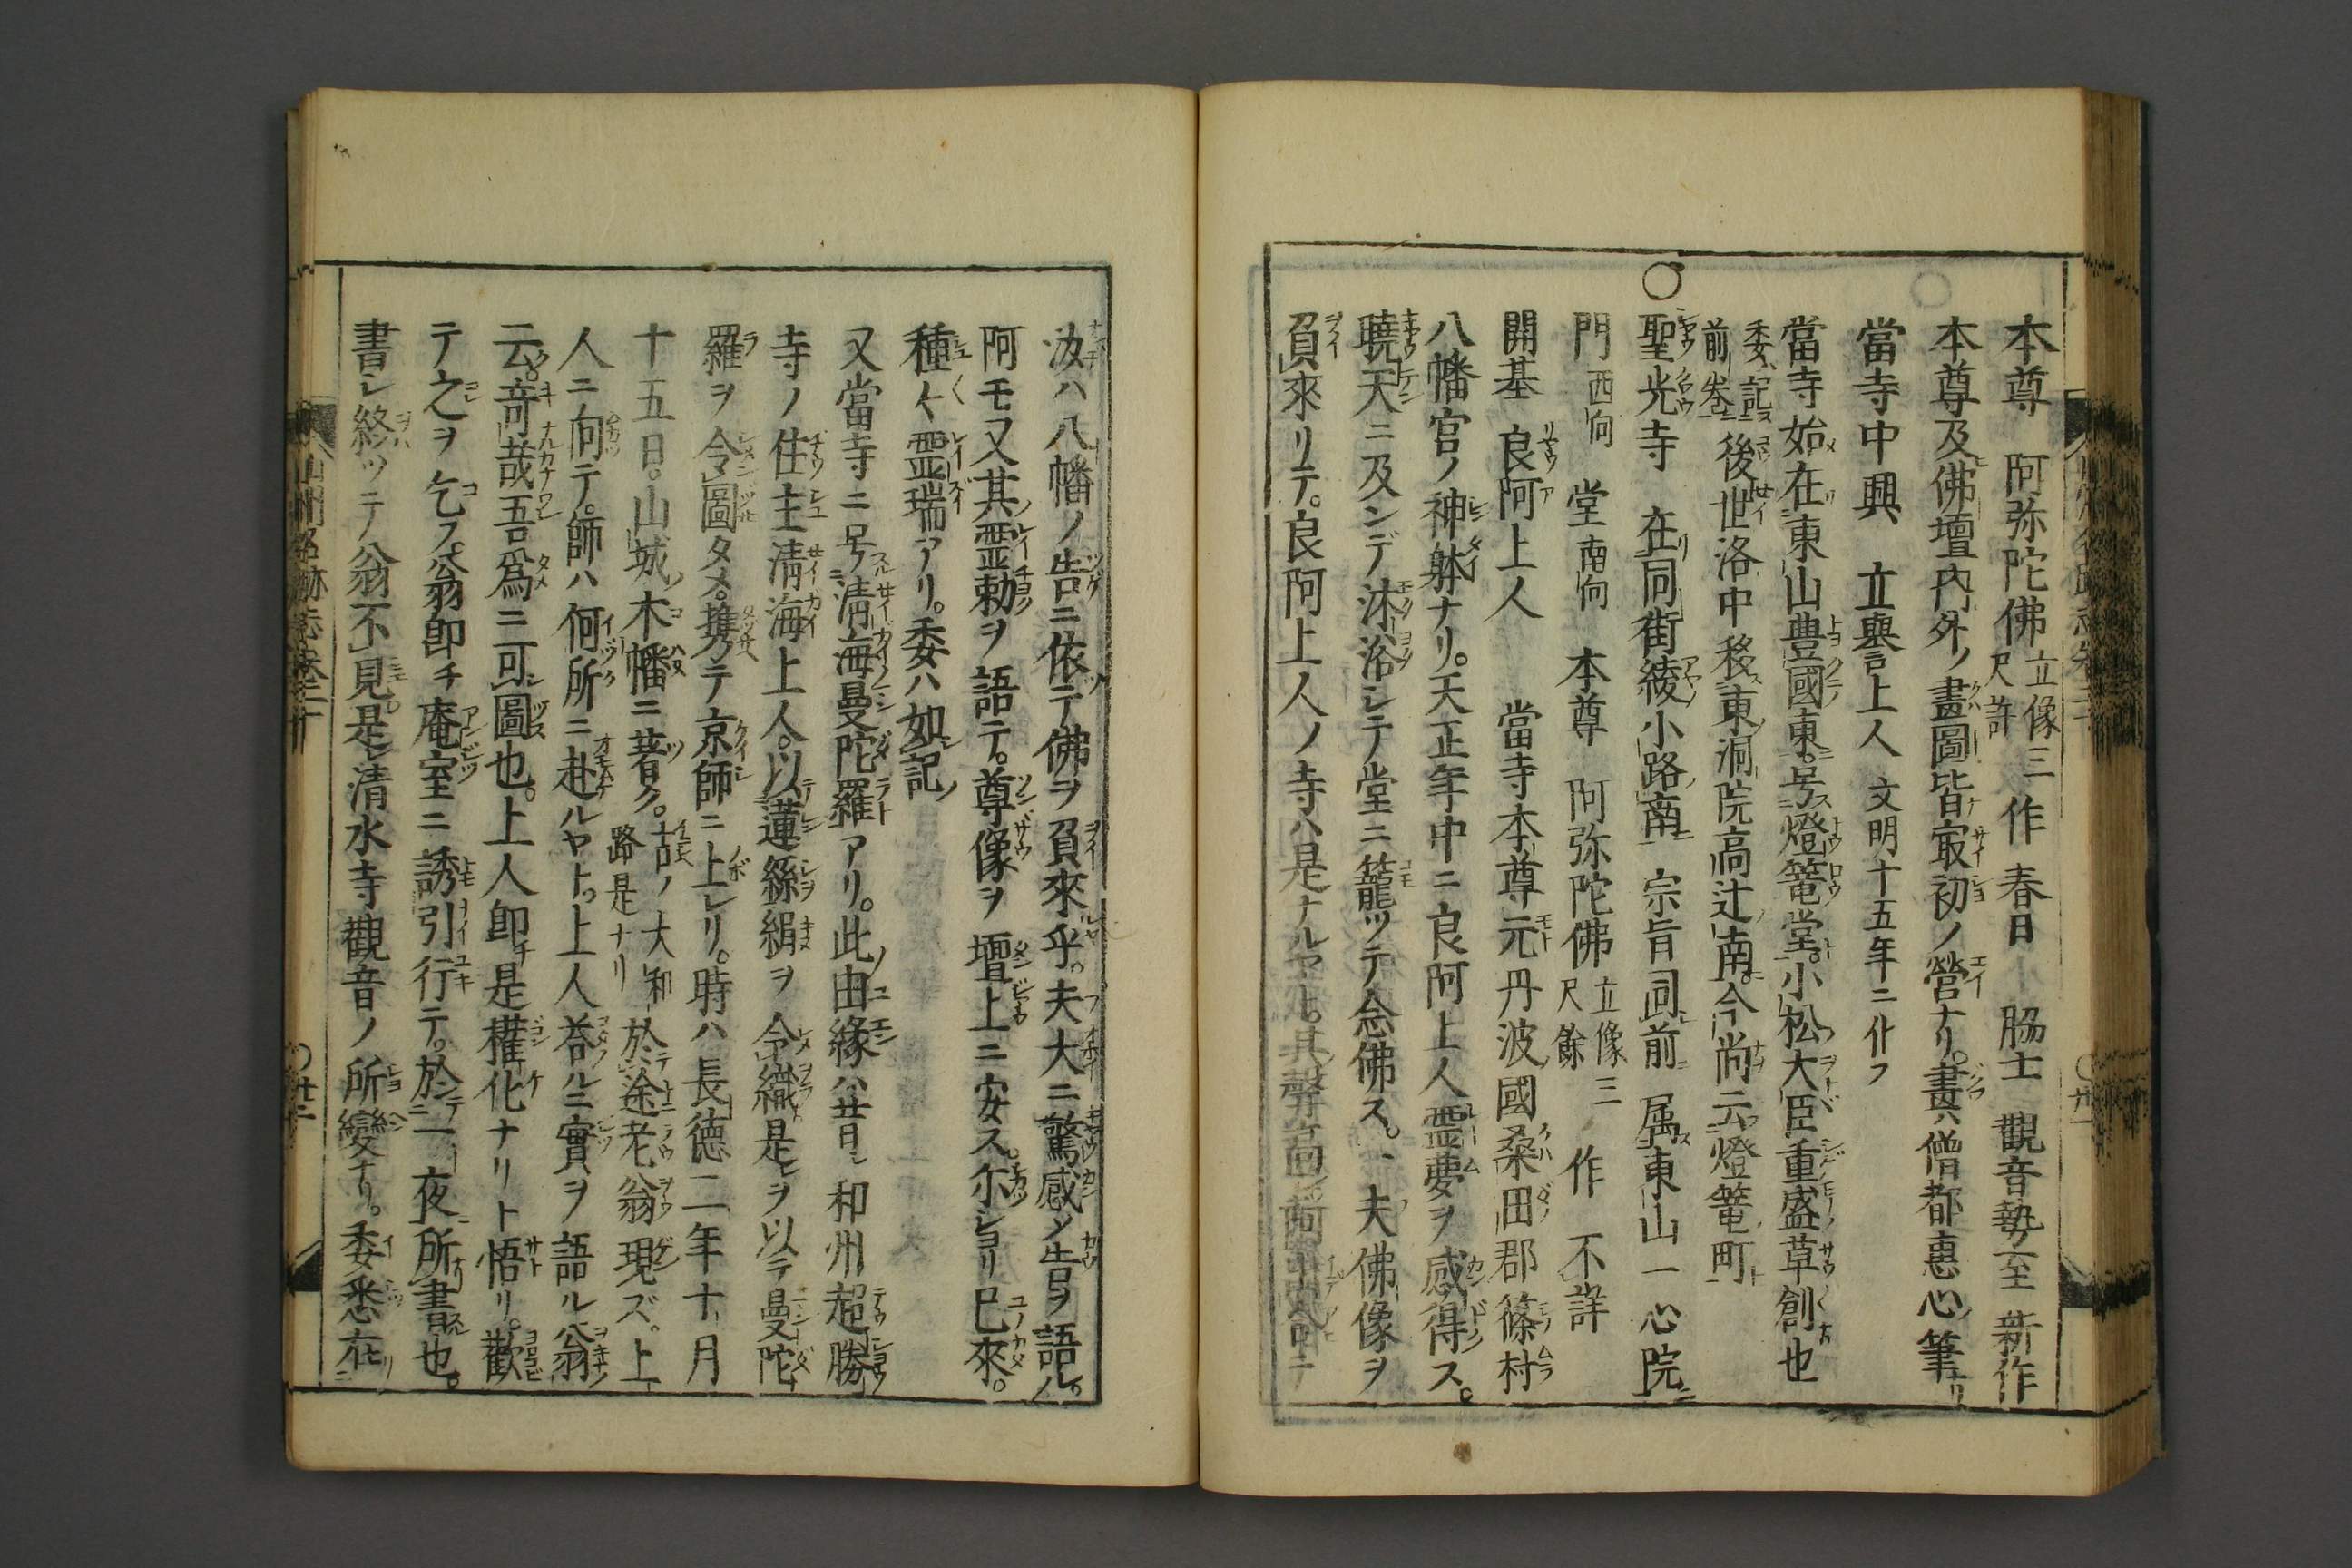 本尊 阿弥陀佛 立像三尺許 作 春日 脇士 觀音勢至 新作
本尊及佛壇內外ノ畫圖皆㝡初ノ營ナリ。畫ハ僧都惠心ノ筆ナリ
當寺中興 立譽上人 文明十五年ニ化ス
當寺始在東山豊國東。号燈篭堂。小松大臣重盛草創也
委記前巻 後世洛中移東洞院高辻南。今尚云燈篭町
〇聖光寺 在同街綾小路南 宗旨同前 属東山一心院
門 西向 堂 南向 本尊 阿弥陀佛 立像三尺餘 作 不詳
開基 良阿上人 當寺本尊元丹波國桑田郡篠村
八幡宮ノ神躰ナリ。天正年中ニ良阿上人霊夢ヲ感得ス。
曉天ニ及ンデ沐浴シテ堂ニ籠ツテ念佛ス。一夫佛像ヲ
負來リテ。良阿上人ノ寺ハ是ナルヤト。其聲高シ阿出合ニテ
汝ハ八幡ノ告ニ依テ佛ヲ負來乎。夫大ニ驚感メ告ヲ語ル。
阿モ又其霊勅ヲ語テ。尊像ヲ壇上ニ安ス。尓シヨリ已來。
種々霊瑞アリ。委ハ如記
又當寺ニ号清海曼陀羅アリ。此由緣ハ昔日和州超勝
寺ノ住主清海上人。以蓮絲絹ヲ令織是ヲ以テ曼陀
羅ヲ令圖タメ。携テ京師ニ上レリ。時ハ長德二年十月
十五日。山城木幡ニ著ク。古ノ大和路是ナリ 於途老翁現ズ。上
人ニ向テ。師ハ何所ニ赴ルヤト。上人荅ルニ實ヲ語ル翁
云。竒哉吾爲ニ可圖也。上人卽チ是權化ナリト悟リ。歡
テ之ヲ乞フ。翁卽チ庵室ニ誘引行テ。於一夜所書也。
書シ終ツテノ翁不見。是レ清水寺觀音ノ所變ナリ。委悉在
山州名跡志巻二十
〇廿二